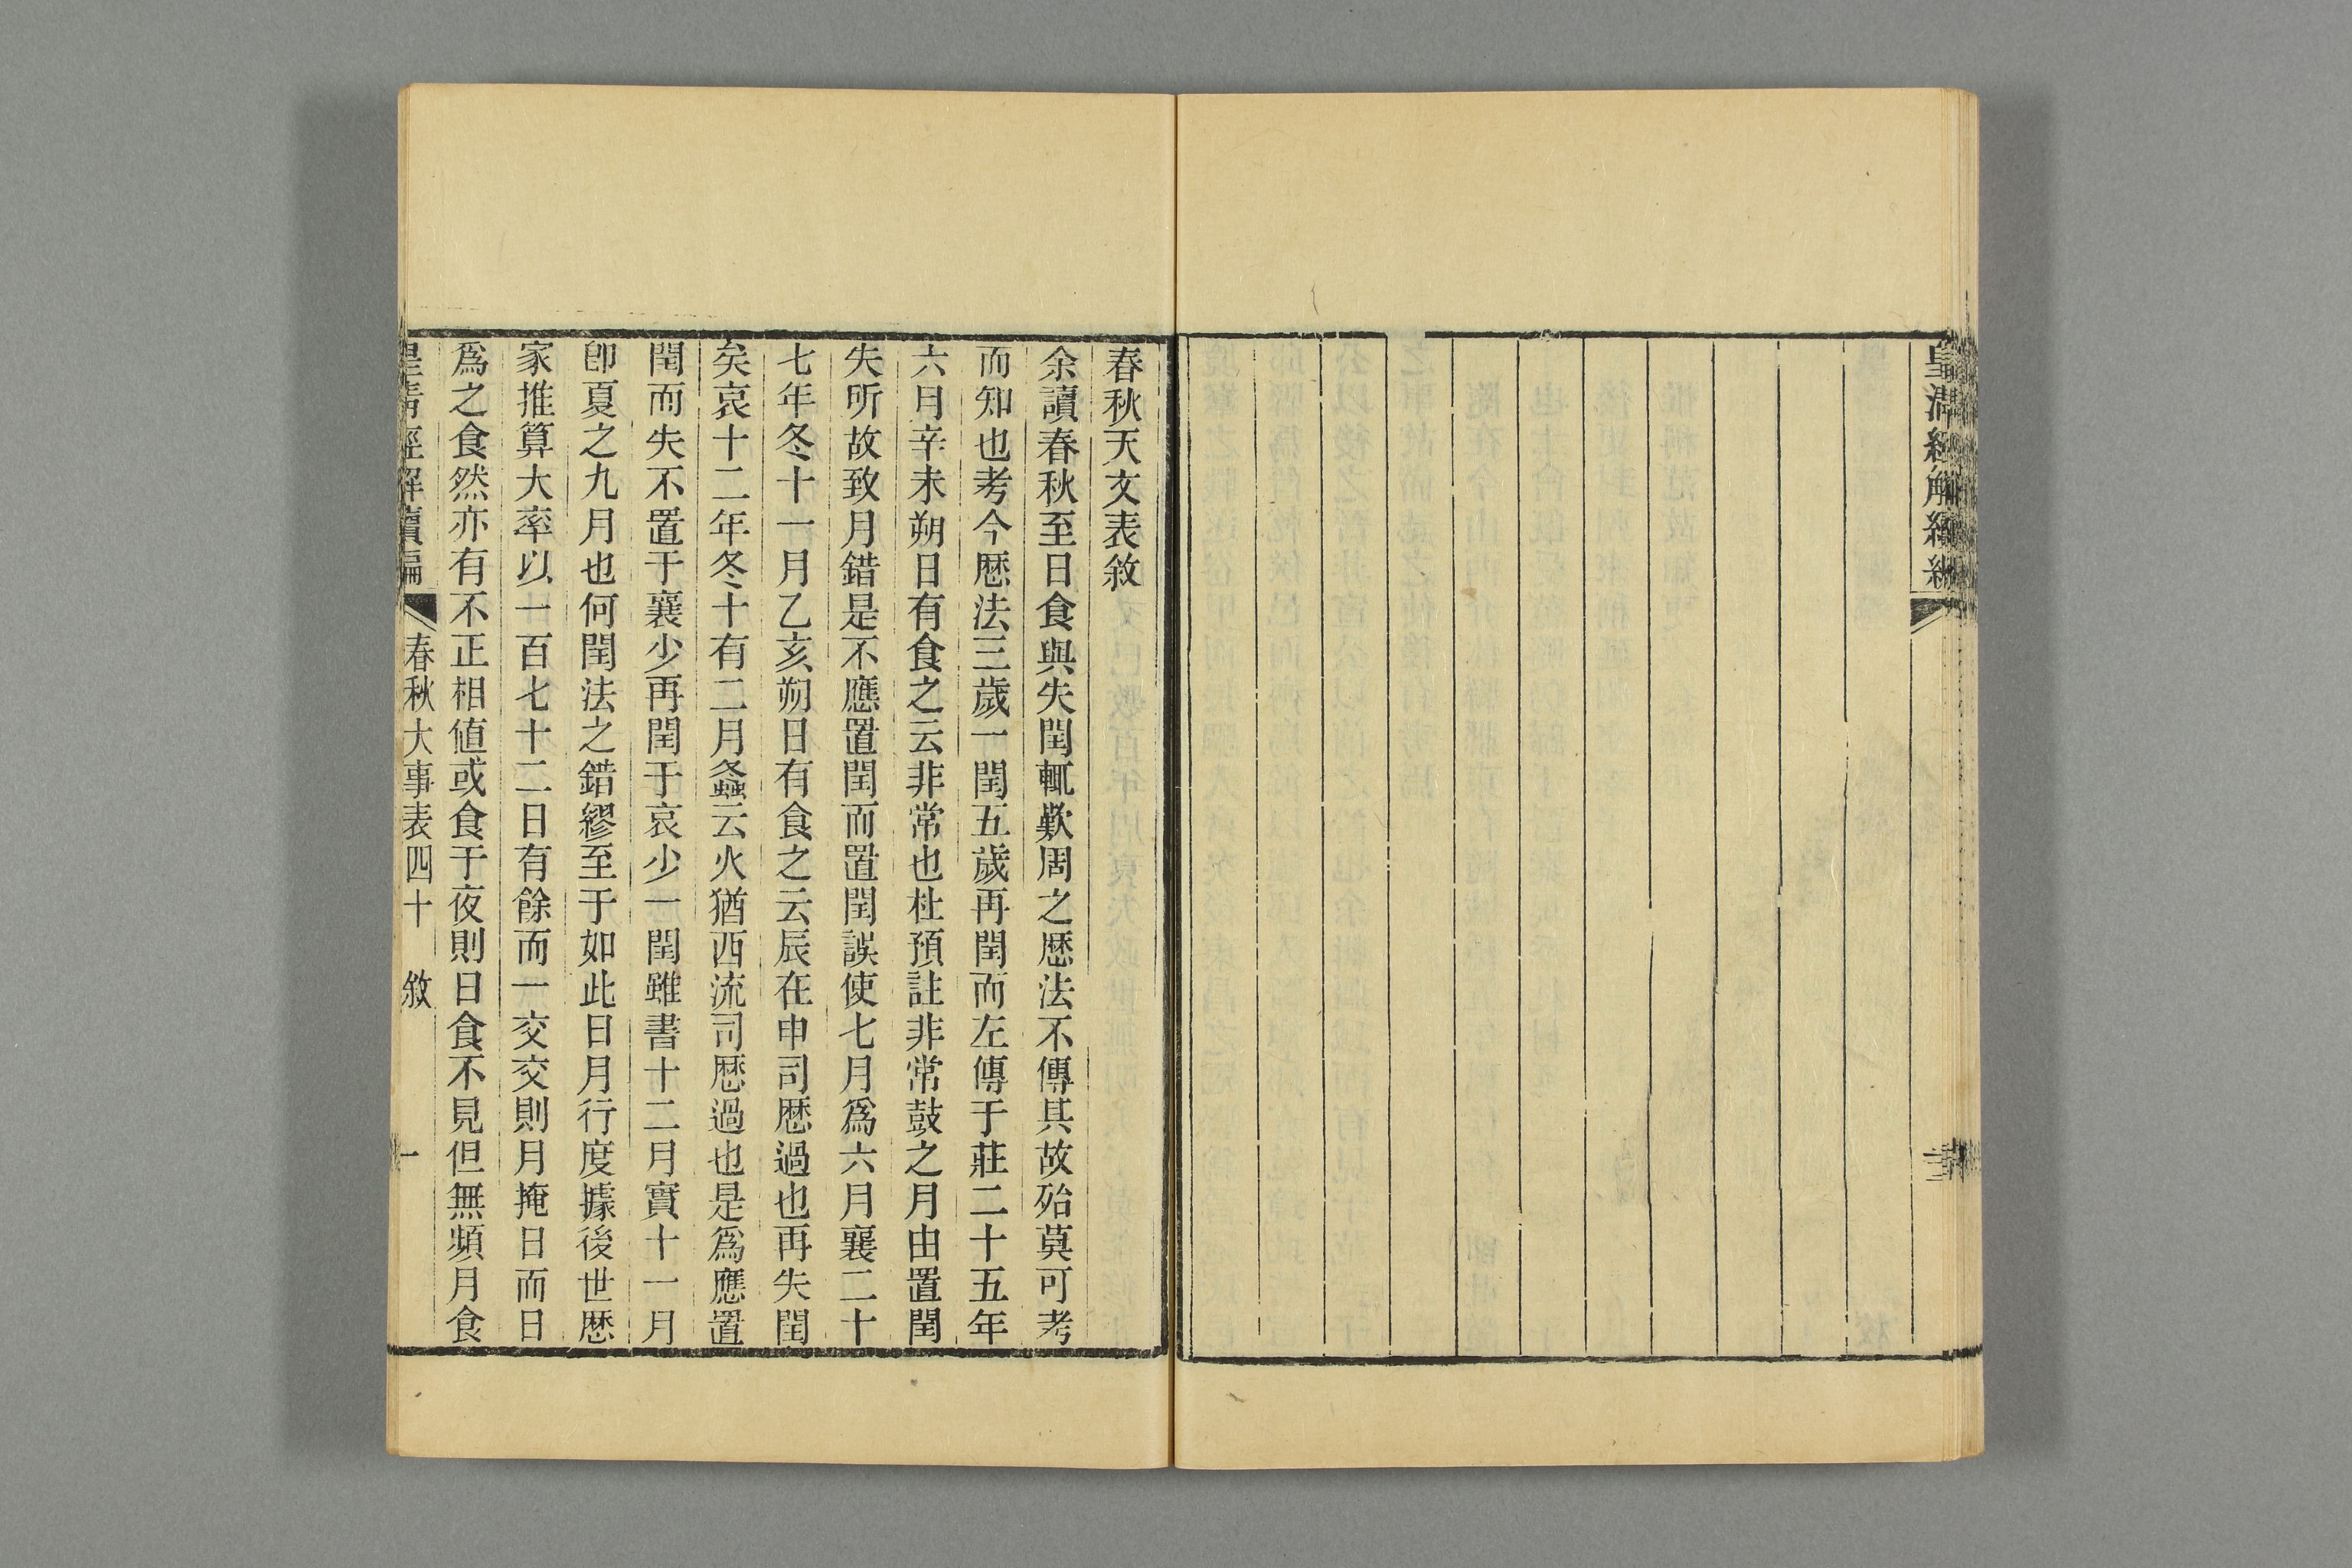 皇清經解續編
春秋天文表敘
余讀春秋至日食與失閏輒歎周之厯法不傳其故殆莫可考
而知也考今厯法三歲一閏五歲再閏而左傳于莊二十五年
六月辛未朔日有食之云非常也杜預註非常鼓之月由置閏
失所故致月錯是不應置閏而置閏誤使七月爲六月襄二十
七年冬十一月乙亥朔日有食之云辰在申司厯過也再失閏
矣哀十二年冬十有二月螽云火猶西流司厯過也是爲應置
閏而失不置于襄少再閏于哀少一閏雖書十二月實十一月
卽夏之九月也何閏法之錯繆至于如此日月行度據後世厯
家推算大率以一百七十二日有餘而一交交則月掩日而日
爲之食然亦有不正相値或食于夜則日食不見但無頻月食
皇清經解續編 春秋大事表四十 敘 一